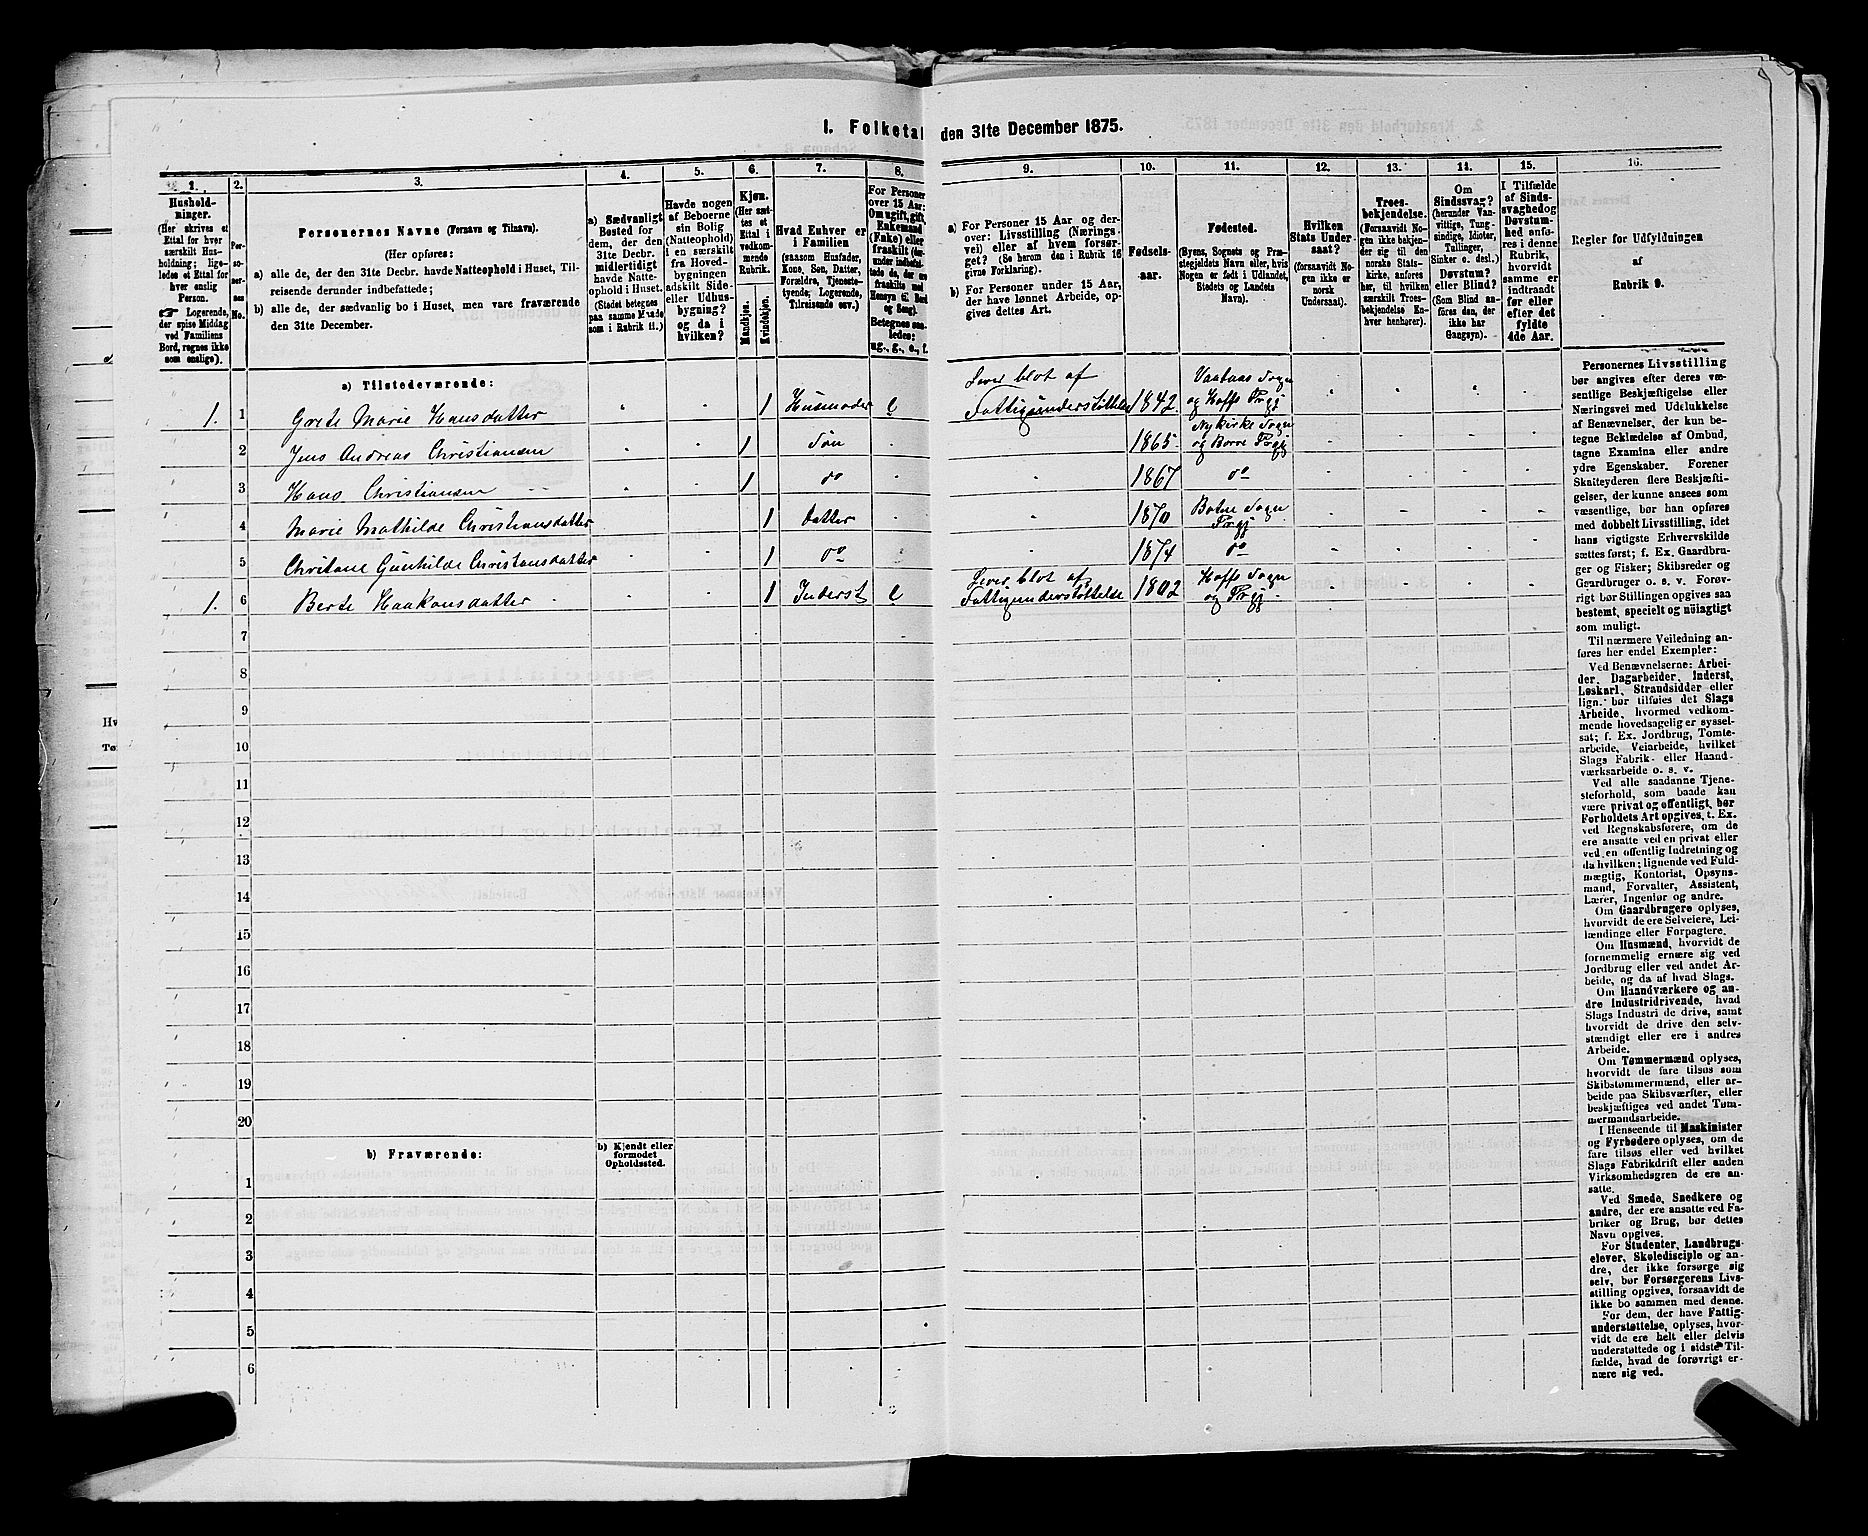 1. Folketal den 31te December 1875.
1. 2. 3. 4. 5. 6. 7. 8. 9. 10. 11. 12. 13. 14. 15. 16.
Hushold-
ninger.
(Her skrives et
Ettal for hver
særskilt Hus-
holdning; lige-
ledes et Ettal for
hver enslig
Person.
☞ Logerende,
der spise Middag
ved Familiens
Bord, regnes ikke
som enslige).
Per-
so-
ner-
nes
No.
Personernes Navne (Fornavn og Tilnavn).
(Her opføres:
a) alle de, der den 31te Decbr. havde Natteophold i Huset, Til-
reisende derunder indbefattede;
b) alle de, der sædvanlig bo i Huset, men vare fraværende
den 31te December.
a) Sædvanligt
Bosted for
dem, der den
31te Decbr.
midlertidigt
havde Natte-
ophold i Huset.
(Stedet betegnes
paa samme Maade
som i Rubrik 11.)
Havde nogen
af Beboerne
sin Bolig
(Natteophold)
i en særskilt
fra Hoved-
bygningen
adskilt Side-
eller Udhus-
bygning?
og da i
hvilken?
Kjøn.
(Her sæt-
tes et
Ettal i
vedkom-
mende
Rubrik.
Mandkjøn.
Kvindekjøn.
Hvad Enhver er
i Familien
(saasom Husfader,
Kone, Søn, Datter,
Forældre, Tjeneste-
tyende, Logerende,
Tilreisende osv.)
For Personer
over 15 Aar:
Om ugift, gift,
Enkemand
(Enke) eller
fraskilt
Betegnes saa-
ledes:
ug., g., e., f.
a) For Personer 15 Aar og der-
over: Livsstilling (Nærings-
vei) eller af hvem forsør-
get? (Se herom den i Rubrik 16
givne Forklaring).
b) For Personer under 15 Aar,
der have lønnet Arbeide, op-
gives dettes Art.
Fødsels-
aar.
Fødested.
(Byens, Sognets og Præ-
stegjeldets Navn eller, hvis
Nogen er født i Udlandet,
Stedets og Landets
Navn).
Hvilken
Stats Under-
saat?
(forsaavidt No-
gen ikke er
norsk
Undersaat).
Troes-
bekjendelse.
(Forsaavidt No-
gen ikke bekjen-
der sig til den
norske Stats-
kirke, anføres
her, til hvilken
særskilt Troes-
bekjendelse En-
hver henhører).
Om
Sindssvag?
(herunder Van-
vittige, Tung-
sindige, Idioter,
Tullinger,
Sinker o. desl.)
Døvstum?
eller Blind?
(Som Blind an-
føres den, der
ikke har
Gangsyn).
I Tilfælde
af Sinds-
svaghed og
Døvstum-
hed anfø-
res i denne
Rubrik,
hvorvidt
samme er
indtraadt
før eller
efter det
fyldte
4de Aar.
Regler for Udfyldningen
af
Rubrik 9.
a) Tilstedeværende:
1. 1 Grete Marie Hansdatter 1 Husmoder e Lever blot af Fattigunderstøttelse 1842. og Hoffs Prgj
2 Jens Andreas Christiansen 1 Søn 1865 Nykirke Sogn og Borre Prgj
3 Hans Christiansen 1 do 1867 do
4 Marie Mathilde Christiansdatter 1 Datter 1870 Botne Sogn Prgj
5 Christiansdatter 1 do 1874 do
1. 6 Berte Haakonsdatter 1 Inderst e Lever blot af Fattigunderstøttelse 1802 Hoffs Sogn og Prgj
7
8
9
10
11
12
13
14
15
16
17
18
19
20
b) Fraværende:
b) Kjendt eller
formodet
Opholdssted.
1
2
3
4
5
6
Personernes Livsstilling
bør angives efter deres væ-
sentlige Beskjæftigelse eller
Næringsvei med Udelukkelse
af Benævnelser, der kun be-
tegne Beklædelse af Ombud,
tagne Examina eller andre
ydre Egenskaber. Forener
Skatteyderen flere Beskjæfti-
gelser, der kunne ansees som
væsentlige, bør han opføres
med dobbelt Livsstilling, idet
hans vigtigste Erhvervskilde
sættes først; f. Ex. Gaardbru-
ger og Fisker; Skibsreder og
Gaardbruger o. s. v. Forøv-
rigt bør Stillingen opgives saa
bestemt, specielt og nøiagtigt
som muligt.
Til nærmere Veiledning an-
føres her endel Exempler:
Ved Benævnelserne: Arbei-
der, Dagarbeider, Inderst,
Løskarl, Strandsidder eller
lign. bør tilføies det Slags
Arbeide, hvormed vedkom-
mende hovedsagelig er syssel-
sat; f. Ex. Jordbrug, Tomte-
arbeide, Veiarbeide, hvilket
Slags Fabrik- eller Haand-
værksarbeide o. s. v.
Ved alle saadanne Tjene-
steforhold, som baade kan
være privat og offentligt, bør
Forholdets Art opgives, t. Ex.
ved Regnskabsførere, om de
ere ansatte ved en privat eller
ved en offentlig Indretning og
da hvilken; lignende ved Fuld-
mægtig, Kontorist, Opsyns-
mand, Forvalter, Assistent,
Lærer, Ingeniør og andre.
Om Gaardbrugere oplyses,
hvorvidt de ere Selveiere, Lei-
lændinge eller Forpagtere.
Om Husmænd, hvorvidt de
fornemmelig ernære sig ved
Jordbrug eller ved andet Ar-
beide, og da af hvad Slags.
Om Haandværkere og an-
dre Industridrivende, hvad
Slags Industri de drive, samt
hvorvidt de drive den selv-
stændigt eller ere i andres
Arbeide.
Om Tømmermænd oplyses,
hvorvidt de fare tilsøs som
Skibstømmermænd, eller ar-
beide paa Skibsværfter, eller
beskjæftiges ved andet Tøm-
mermandsarbeide.
I Henseende til Maskinister
og Fyrbødere oplyses, om de
fare tilsøs eller ved hvilket
Slags Fabrikdrift eller anden
Virksomhedsgren de ere an-
satte.
Ved Smede, Snedkere og
andre, der ere ansatte ved Fa-
briker og Brug, bør dettes
Navn opgives.
For Studenter, Landbrugs-
elever, Skoledisciple og an-
dre, der ikke forsørge sig
selv, bør Forsørgerens Livs-
stilling opgives, forsaavidt de
ikke bo sammen med denne.
For dem, der have Fattig-
understøttelse, oplyses, hvor-
vidt de ere helt eller delvis
understøttede og i sidste Til-
fælde, hvad de forøvrigt er-
nære sig ved.